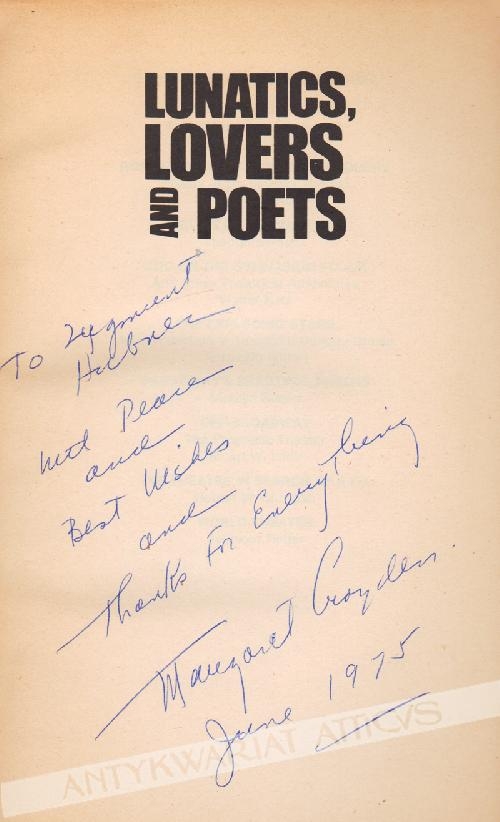 LUNATICS,
LOVERS
AND POETS
To Zygmunt
Hubner
with Peace
and
Best Wishes
and
Thanks For Everything
Margaret Croyden.
June 1975
ANTYKWARIAT ATTICVS